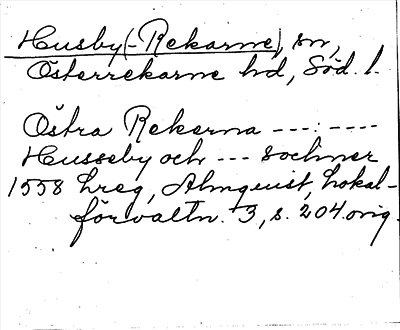 Husby(-Rekarne), sn,
Österrekarne hd, Söd. l.
Östra Rekarna ---:----
Husseby och --- sochner
1558 Lreg, Almquist, Lokal-
förvaltn. 3, s. 204.orig.